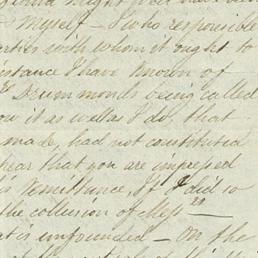 might
- Myself - I who responsible
parties with whom it ought to
instance I have known of
Drummonds being called
now it as well as I do, that
made, had not constituted
hear that you are impressed
is remittance, If I did so
the collusion of Mess.rs -
at is unfounded - On the